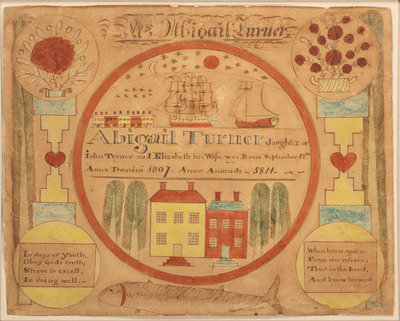 Abigail Turner
Abigail Turner daughter of
John Turner and Elizabeth his Wife was Born September 12th
Anno Domini 1807. Anno Amendi 5811.
In days of Youth,
Obey Gods truth,
Strive to excell,
In doing well.
When born again,
From sin refrain,
Trust in the Lord,
And know his word.